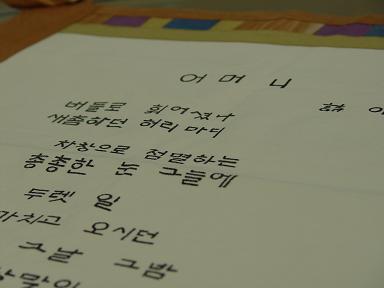 어머니
버들로 휘어졌나
새촘하던 허리 마디
차창으로 점멸하는
총총한 눈 그늘에
두렛 일
마치고 오시던
그날 그밤